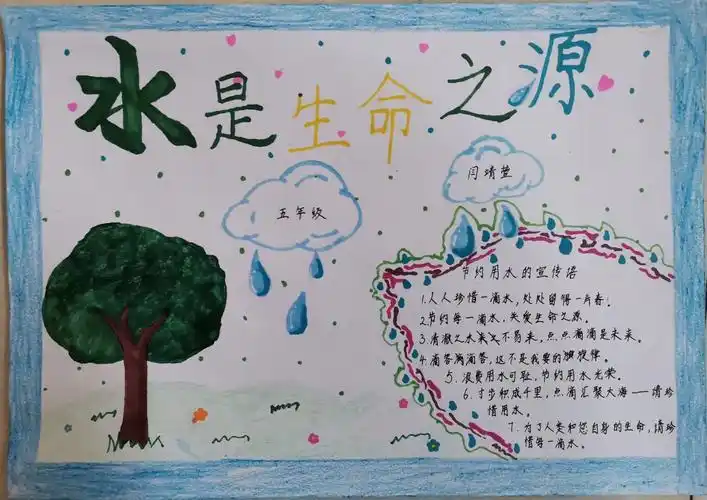 水是生命之源
五年级
闫靖萱
节约用水的宣传语
1.人人珍惜一滴水,处处留得一片春。
2.节约每一滴水,关爱生命之源。
3.清澈之水来不易来,点点滴滴是未来。
4.滴答滴滴答,这不是我要的旋律。
5.浪费用水可耻,节约用水光荣。
6.寸步积成千里,点滴汇聚大海——请珍
惜用水。
7.为了人类和您自身的生命,请珍
惜每一滴水。